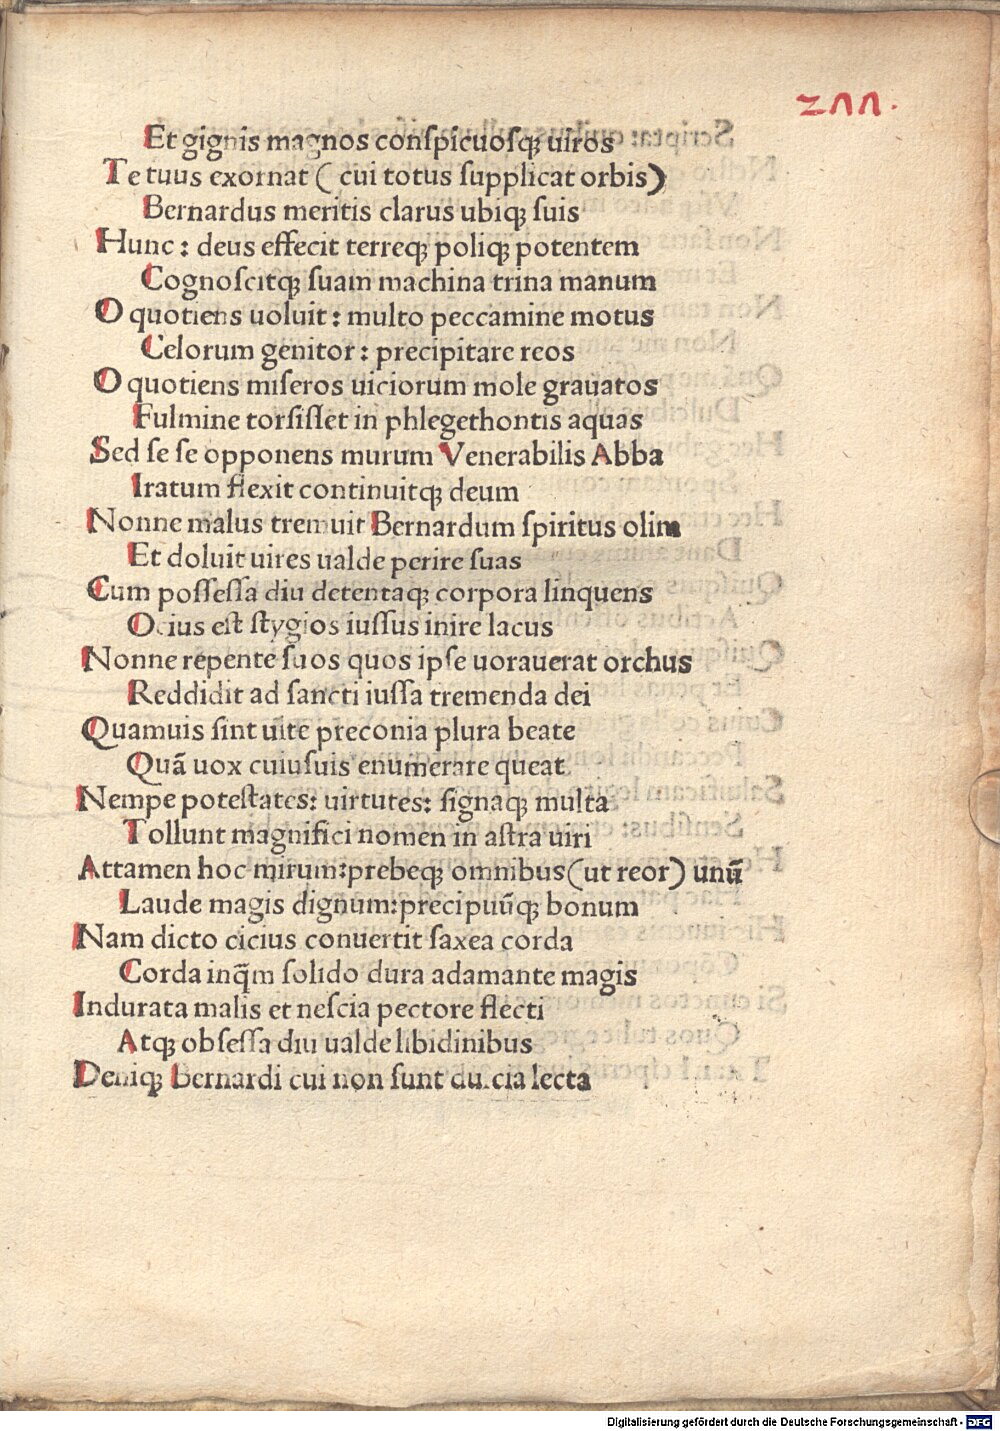 2ΛΛ.
Et gignis magnos conſpicuoſqꝫ uiros
Te tuus exornat ( cui totus ſupplicat orbis)
Bernardus meritis clarus ubiqꝫ ſuis
Hunc : deus effecit terreqꝫ poliqꝫ potentem
Cognoſcitqꝫ ſuam machina trina manum
O quotiens uoluit : multo peccamine motus
Celorum genitor : precipitare reos
O quotiens miſeros uiciorum mole grauatos
Fulmine torſiſſet in phlegethontis aquas
Sed ſe ſe opponens murum Venerabilis Abba
Iratum flexit continuitqꝫ deum
Nonne malus tremuit Bernardum ſpiritus olim
Et doluit uires ualde perire ſuas
Cum poſſeſſa diu detentaqꝫ corpora linquens
Ocius eſt ſtygios iuſſus inire lacus
Nonne repente ſuos quos ipſe uorauerat orchus
Reddidit ad ſancti iuſſa tremenda dei
Quamuis ſint uite preconia plura beate
Quā uox cuiuſuis enumerare queat
Nempe poteſtates: uirtutes: ſignaqꝫ multa
Tollunt magnifici nomen in aſtra uiri
Attamen hoc mirum:prebeqꝫ omnibus(ut reor) unū
Laude magis dignum:precipuūqꝫ bonum
Nam dicto cicius conuertit ſaxea corda
Corda inq̄m ſolido dura adamante magis
Indurata malis et neſcia pectore flecti
Atqꝫ obſeſſa diu ualde libidinibus
Deniqꝫ Bernardi cui non ſunt dulcia lecta
Digitalisierung gefördert durch die Deutsche Forschungsgemeinschaft - DFG